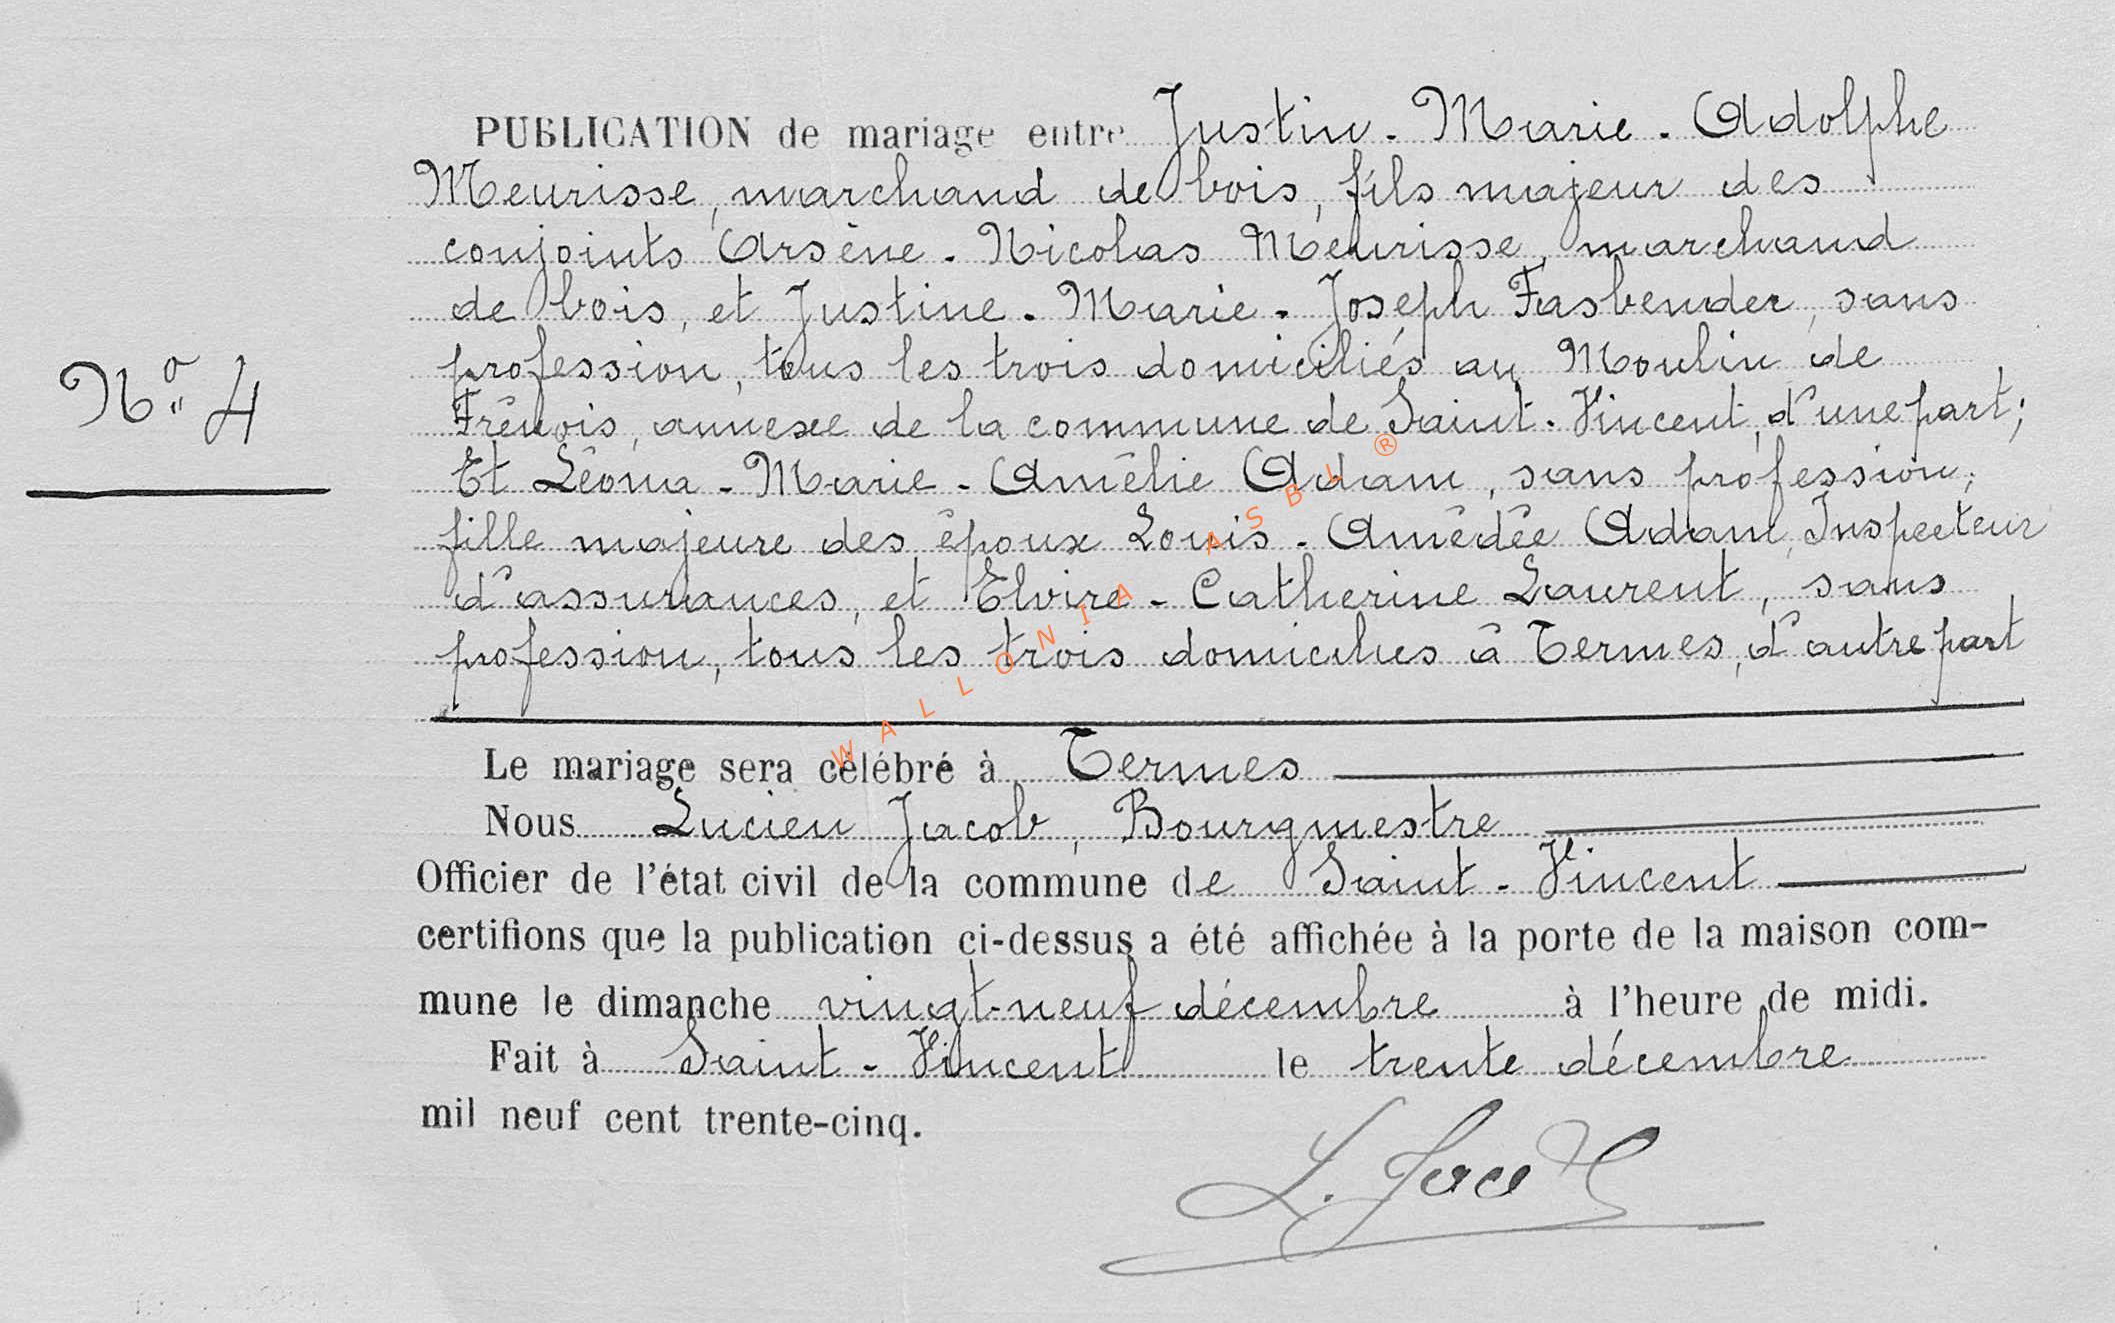 PUBLICATION de mariage entre Justin-Marie-Adolphe
Meurisse, marchand de bois, fils majeur des
conjoints Arsène-Nicolas Meurisse, marchand
de bois, et Justine-Marie-Joseph Fasbender, sans
profession, tous les trois domiciliés au Moulin de
Frênois, annexe de la commune de Saint-Vincent, d'une part;
Et Léona-Marie-Amélie Adam, sans profession,
fille majeure des époux Louis-Amédée Adam, Inspecteur
d'assurances, et Elvire-Catherine Laurent, sans
profession, tous les trois domiciliés à Termes, d'autre part
Nº 4
Le mariage sera célébré à Termes
Nous Lucien Jacob, Bourgmestre
Officier de l'état civil de la commune de Saint-Vincent
certifions que la publication ci-dessus a été affichée à la porte de la maison com-
mune le dimanche vingt-neuf décembre à l'heure de midi.
Fait à Saint-Vincent le trente décembre
mil neuf cent trente-cinq.
L. Jacob
WALLONIA ASBL ®